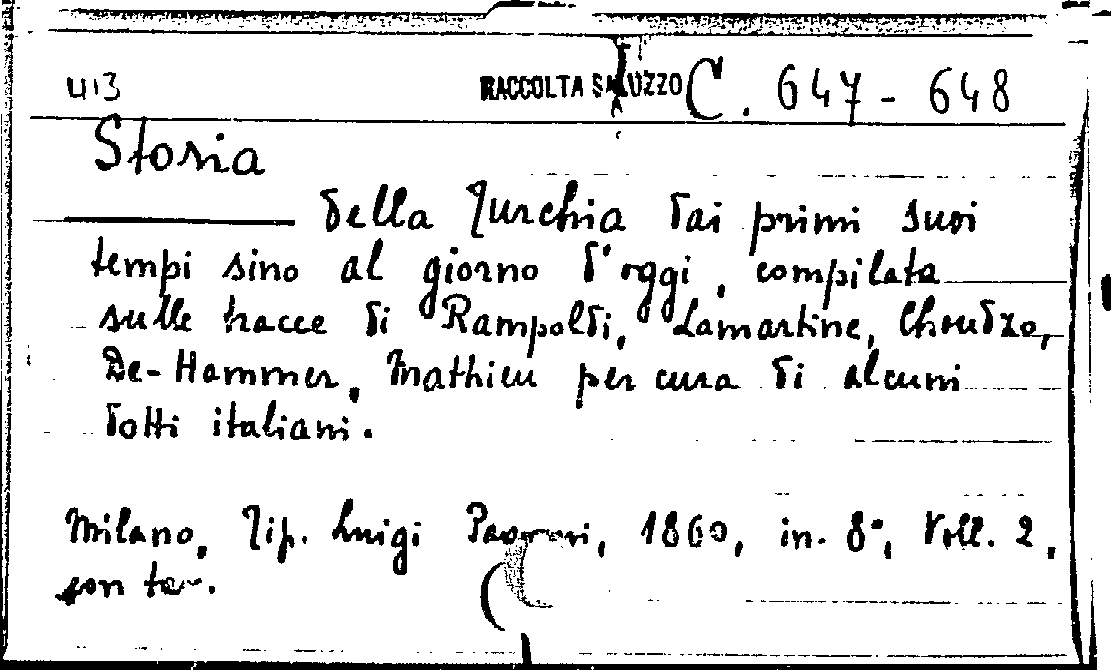 413 RACCOLTA SALUZZO C. 647-648
Storia
della Turchia dai primi suoi
tempi sino al giorno d'oggi, compilata
sulle tracce di Rampoldi, Lamartine, Choudzo,
De-Hammer, Mathieu per cura di alcuni
dotti italiani.
Milano, Tip. Luigi 1860, in-8°, Voll. 2,
con